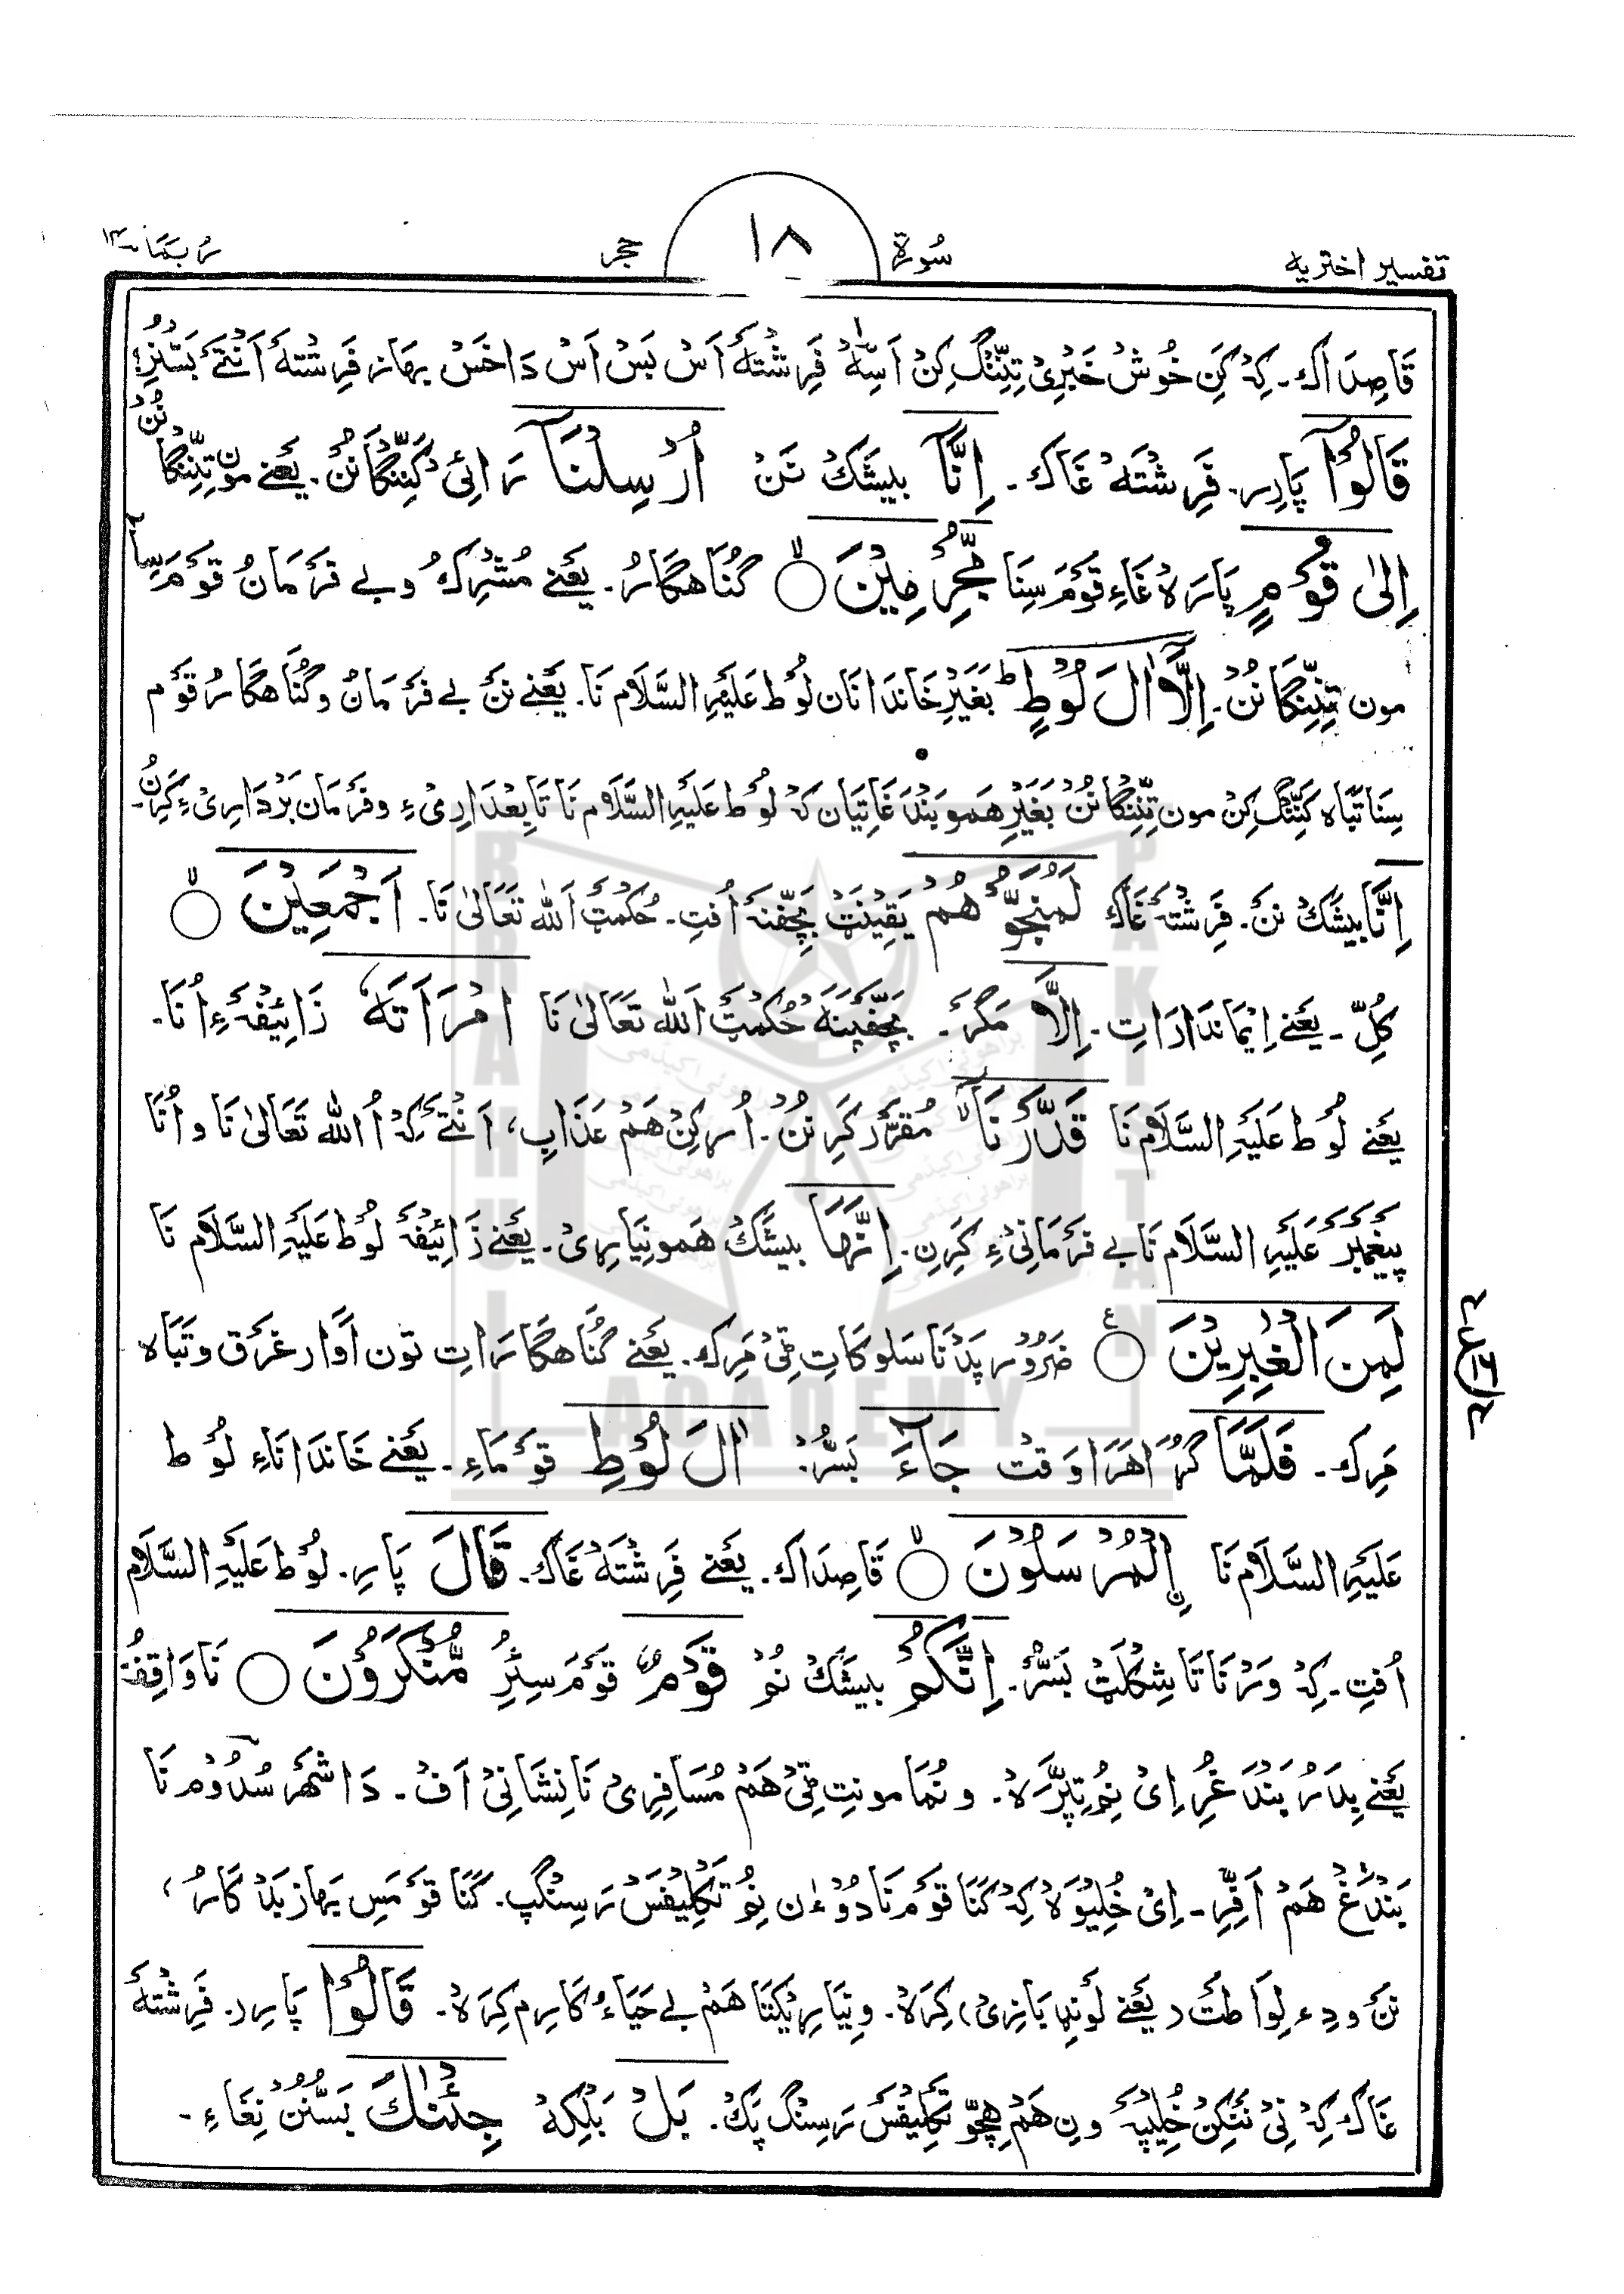 تفسیر اختریہ سُورۃ ١٨ حجر رُبَمَا ۱۴
قَاصِدَاک۔ کِہْ کَنِ خُوشْ خَبْرِیْ تِنِّنْگ کِنْ اَسِّہْ فَرِشْتَہْ اَسْ بَسْ اَسْ دَاخَسْ بھاز فَرِشْتَہْ اَنْتَےْ بَسُّنْرِ؟
قَالُوْٓا پَارِر۔ فَرِشْتَہْ غَاک۔ اِنَّآ بیشَکْ نَنْ اُرْسِلْنَآ رَائِیْ کَنِنْگَانُنْ۔ یَعْنے مون تِنِنْگَا نُنْ
اِلٰی قَوْمٍ پَارَہْ غَاءِ قَوْمَ سِنَا مُّجْرِمِیْنَ ۙ گُنَاھگَارُ۔ یَعْنے مُشْرِکُ وبے فَرْمَانُ قَوْمَ سِآ
مون تِنِنْگَا نُنْ۔ اِلَّآ اٰلَ لُوْطٍ ؕ بَغَیْرِ خَاندَانَان لُوْط عَلَیْہِ السَّلَام نَا۔ یَعْنے نَنْ بے فَرْمَانُ وگُنَاھگَارُ قَوْم
سِنَا تَبَاہ کَنِنْگ کِنْ مون تِنِنْگَا نُنْ بَغَیْرِ ھَمو بَنْدَغَاتِیَان کِہْ لُوْط عَلَیْہِ السَّلَام نَا تَابِعْدَارِیْ ءِ وفَرْمَان بَرْدَارِیْ ءِ کَرِنُ۔
اِنَّا بیشَکْ نَنْ۔ فَرِشْتَہْ غَاک لَمُنَجُّوْھُمْ یَقِیْنَتْ بَچِّفِنَہْ اُفتِ۔ حُکْمَتْ اَللّٰہ تَعَالٰی نَا۔ اَجْمَعِیْنَ ۙ
کُلِّ۔ یَعْنے اِیْمَاندَارَاتِ۔ اِلَّا مَگَرْ۔ بَچِّفِپَنَہْ حُکْمَتْ اَللّٰہ تَعَالٰی نَا امْرَاَتَہٗ زَائِیْفَہْ ءِ اُنَا۔
یَعْنے لُوْط عَلَیْہِ السَّلَام نَا قَدَّرْنَآ ۙ مُقَرَّرْ کَرِنُنْ۔ اُرکِنْ ھَمْ عَذَابِ، اَنْتَےْ کِہْ اُ اللّٰہ تَعَالٰی نَا و اُنَا
پیغَمْبَرْ عَلَیْہِ السَّلَام نَا بے فَرْمَانِیْ ءِ کَرِنِ۔ اِنَّھَا بیشَکْ ھَمو نِیَارِیْ۔ یَعْنے زَائِیْفَہْ لُوْط عَلَیْہِ السَّلَام نَا
لَمِنَ الْغٰبِرِیْنَ ۠ ضَرُوْر پَدْنَا سَلوکَاتِ ٹِیْ مَرِک۔ یَعْنے گُنَاھگَارَاتِ تون اَوار غَرْق وتَبَاہ
مَرِک۔ فَلَمَّا گُرَ اھَرَا وَقتْ جَآءَ بَسُّرْ: اٰلَ لُوْطِ قَوْمَاءِ۔ یَعْنے خَاندَانَاءِ لُوْط
عَلَیْہِ السَّلَام نَا اِ۟لْمُرْسَلُوْنَ ۙ قَاصِدَاک۔ یَعْنے فَرِشْتَہْ غَاک۔ قَالَ پَارِ۔ لُوْط عَلَیْہِ السَّلَام
اُفتِ۔ کِہْ وَرْنَا تَا شِکْلَٹْ بَسُّرْ۔ اِنَّکُمْ بیشَکْ نُمْ قَوْمٌ قَوْمَ سِیْرِ مُّنْکَرُوْنَ ○ نَاوَاقِفْ:
یَعْنے بِدَارُ بَنْدَغْرِ اِیْ نُمِ تِپَّرَہْ۔ و نُمَا مونتِ ٹِیْ ھَمْ مُسَافِرِیْ نَا نِشَانِیْ اَفْ۔ دَا شَھْر سُدُوْم نَا
بَنْدَغْ ھَمْ اَفِّرِ۔ اِیْ خُلِیْوَہْ کِہْ کَنَا قَوْم نَا دُوْءٰن نُمِ تَکْلِیْفَسْ رَسِنْگِپ۔ کَنَا قَوْمَسِ بھاز بَدْ کَارُ،
نَنْ ودِءِ لِوَاطَتْ (یَعْنے لَونِڈِ بَازِیْ) کِرَہْ۔ و نِیَارِیْکَتَا ھَمْ بے حَیَاءُ کَارِم کِرَہْ۔ قَالُوْا پَارِر۔ فَرِشْتَہْ
غَاک کِہْ نِیْ نَنْکِنْ خُلِیْپَہْ ونِ ھَمْ ھِچّو تَکْلِیْفَسْ رَسِنْگ پَکْ۔ بَلْ بَلْکِہْ جِئْنٰکَ بَسُّنُنْ نِغَاءِ۔